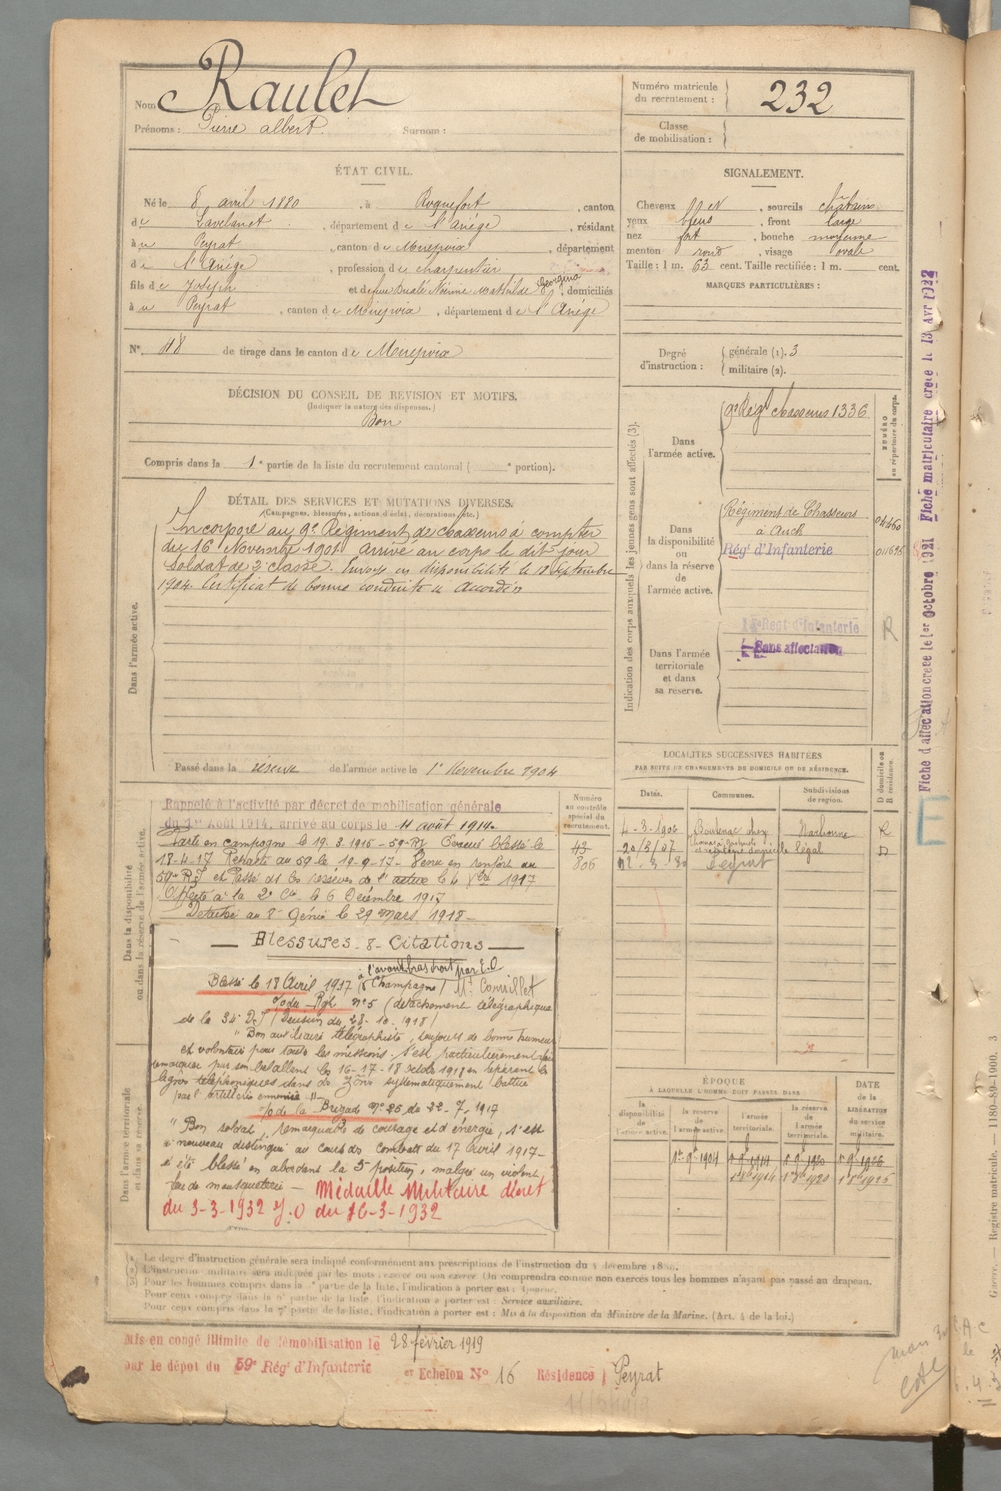 Nom Raulet
Prénoms : Pierre albert. Surnom :
Numéro matricule du recrutement : 232
Classe de mobilisation :
ÉTAT CIVIL.
Né le 8 avril 1880, à Roquefort, canton
de Lavelanet, département de l'Ariége, résidant
à Peyrat, canton de Mirepoix, département
de l'Ariége, profession de charpentier
fils de Joseph et de Mathilde Georgina, domiciliés
à Peyrat, canton de Mirepoix, département de l'Ariége
N° 118 de tirage dans le canton de Mirepoix
SIGNALEMENT.
Cheveux , sourcils châtains
yeux bleus, front large
nez fort, bouche moyenne
menton rond, visage ovale
Taille : 1 m. 63 cent. Taille rectifiée : 1 m. cent.
MARQUES PARTICULIÈRES :
Degré d'instruction :
générale (1). 3
militaire (2).
DÉCISION DU CONSEIL DE REVISION ET MOTIFS.
(Indiquer la nature des dispenses.)
Bon
Compris dans la 1e partie de la liste du recrutement cantonal ( e portion).
DÉTAIL DES SERVICES ET MUTATIONS DIVERSES.
(Campagnes, blessures, actions d'éclat, décorations, etc.)
Dans l'armée active.
Incorporé au 9e Régiment de chasseurs à compter
du 16 Novembre 1901 arrivé au corps le dit jour
Soldat de 2e classe. Envoyé en disponibilité le 18 Septembre
1904. Certificat de bonne conduite accordé
Passé dans la réserve de l'armée active le 1er Novembre 1904
Indication des corps auxquels les jeunes gens sont affectés (3).
NUMÉRO au répertoire du corps.
Dans l'armée active.
9e Régt chasseurs 1336
Dans la disponibilité ou dans la réserve de l'armée active.
Régiment de Chasseurs
à Auch
Régt d'Infanterie
Dans l'armée territoriale et dans sa réserve.
Régt d'Infanterie
Sans affectation
R
Fiche d'affectation créée le 1er Octobre 1921 Fiche matriculaire créée le 13 Avr 1922
E
LOCALITÉS SUCCESSIVES HABITÉES
PAR SUITE DE CHANGEMENTS DE DOMICILE OU DE RÉSIDENCE.
Dates. Communes. Subdivisions de region. D domicile ou R résidence.
4-3-1906 Boutenac Narbonne R
20/3/07 D
Peyrat
Dans la disponibilité ou dans la réserve de l'armée active.
Numéro au contrôle spécial du recrutement.
43
806
Rappelé à l'activité par décret de mobilisation générale
du 1er Août 1914, arrivé au corps le 11 août 1914.
Parti en campagne le 19.3.1915 - 59e RI Évacué blessé le
18.4.17 Rentré au 59 le 19-9-17.
59e RI et Passé dans les réserves de l'active le 1917
Affecté à la 2e Cie le 6 Décembre 1917
Détaché au 8e Génie le 29 mars 1918 -
Dans l'armée territoriale et dans sa réserve.
Blessures & Citations
Blessé le 18 Avril 1917 à l'avant-bras droit par E.O
(Champagne) Mt Cornillet
o/ du Rgt n° 5 (détachement télégraphique
de la 34e D.I / Décision du 28-10-1918)
"Bon auxiliaire télégraphiste, toujours de bonne humeur
et volontaire pour toutes les missions. S'est particulièrement fait
remarquer par son bel allant les 16-17-18 octobre 1918 en réparant les
lignes téléphoniques dans des zones systématiquement battue
par l'artillerie ennemie"-
o/ de la Brigade N° 25 du 22-7-1917
"Bon soldat, remarquable de courage et d'énergie, s'est
à nouveau distingué au cours des combats du 17 Avril 1917 -
a été blessé en abordant la position, malgré un violent
feu de mousqueterie - Médaille Militaire décret
du 3-3-1932 J.O du 16-3-1932
ÉPOQUE
À LAQUELLE L'HOMME DOIT PASSER DANS
la disponibilité de l'armée active. la réserve de l'armée active. l'armée territoriale. la réserve de l'armée territoriale.
DATE de la LIBÉRATION du service militaire.
(1) Le degré d'instruction générale sera indiqué conformément aux prescriptions de l'instruction du 4 décembre 1889.
(2) L'instruction militaire sera indiquée par les mots : exercé ou non exercé. On comprendra comme non exercés tous les hommes n'ayant pas passé au drapeau.
(3) Pour les hommes compris dans la 1re partie de la liste, l'indication à porter est :
Pour ceux compris dans la 6e partie de la liste, l'indication à porter est : Service auxiliaire.
Pour ceux compris dans la 7e partie de la liste, l'indication à porter est : Mis à la disposition du Ministre de la Marine. (Art. 4 de la loi.)
Mis en congé illimité de démobilisation le 28 février 1919
par le dépôt du 59e Régt d'Infanterie Echelon N° 16 Résidence Peyrat
Guerre. — Registre matricule. — 1180-89-1900. 3